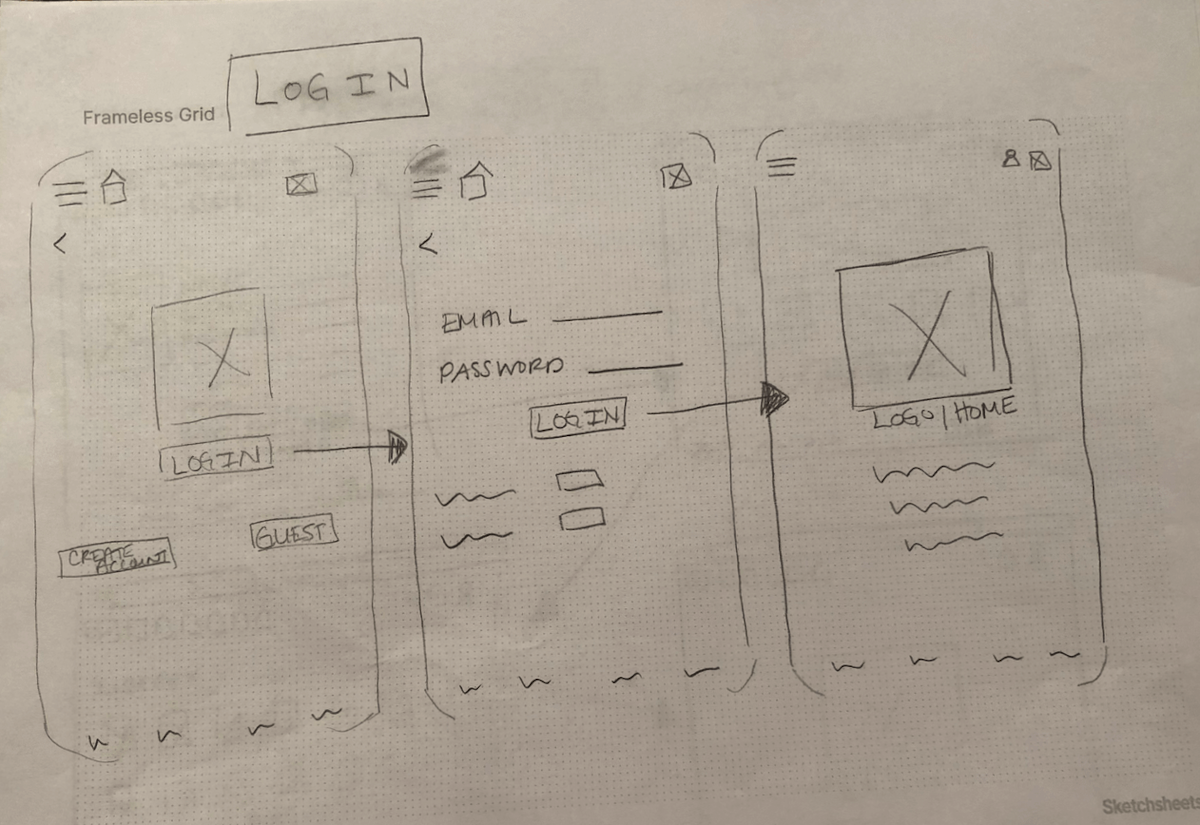 LOG IN
Frameless Grid
LOGIN
CREATE
ACCOUNT
GUEST
EMAIL
PASSWORD
LOGIN
LOGO/HOME
Sketchsheets